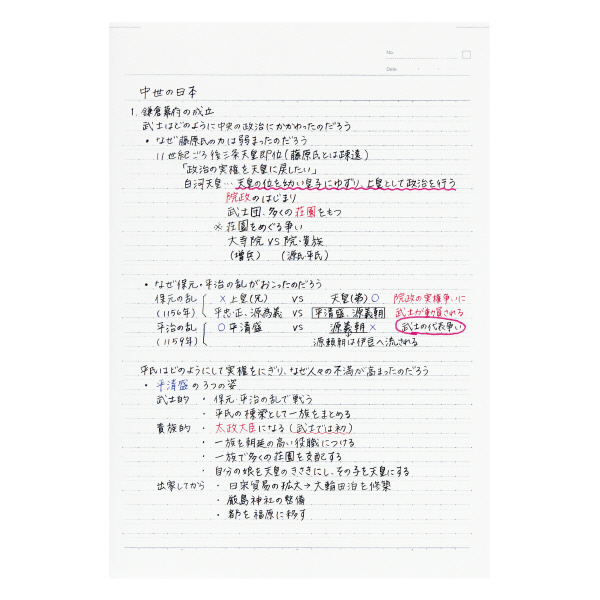 No.
Date
中世の日本
1. 鎌倉幕府の成立
武士はどのように中央の政治にかかわったのだろう
・なぜ藤原氏の力は弱まったのだろう
11世紀ごろ後三条天皇即位(藤原氏とは疎遠)
「政治の実権を天皇に戻したい」
白河天皇…天皇の位を幼い皇子にゆずり、上皇として政治を行う
院政のはじまり
武士団、多くの荘園をもつ
※荘園をめぐる争い
大寺院 VS 院・貴族
(僧兵) (源氏・平氏)
・なぜ保元・平治の乱がおこったのだろう
保元の乱 ×上皇(兄) VS 天皇(弟)○ 院政の実権争いに
(1156年) 平忠正、源為義 VS 平清盛、源義朝 武士が動員される
平治の乱 ○平清盛 VS 源義朝× 武士の代表争い
(1159年) 源頼朝は伊豆へ流される
平氏はどのようにして実権をにぎり、なぜ人々の不満が高まったのだろう
・平清盛の3つの姿
武士的 ・保元・平治の乱で戦う
・平氏の棟梁として一族をまとめる
貴族的 ・太政大臣になる(武士では初)
・一族を朝廷の高い役職につける
・一族で多くの荘園を支配する
・自分の娘を天皇のきさきにし、その子を天皇にする
出家してから ・日宋貿易の拡大→大輪田泊を修築
・厳島神社の整備
・都を福原に移す